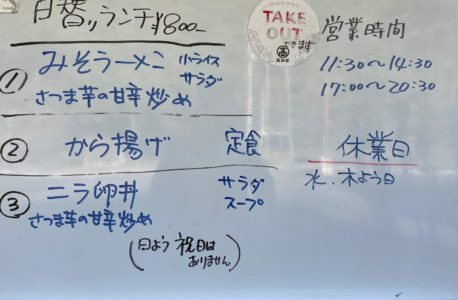 日替りランチ ¥800-
① みそラーメン 小ライス サラダ
さつま芋の甘辛炒め
② から揚げ 定食
③ ニラ卵丼 サラダ スープ
さつま芋の甘辛炒め
(日よう 祝日は ありません)
TAKE OUT
できます
営業時間
11:30〜14:30
17:00〜20:30
休業日
水、木よう日